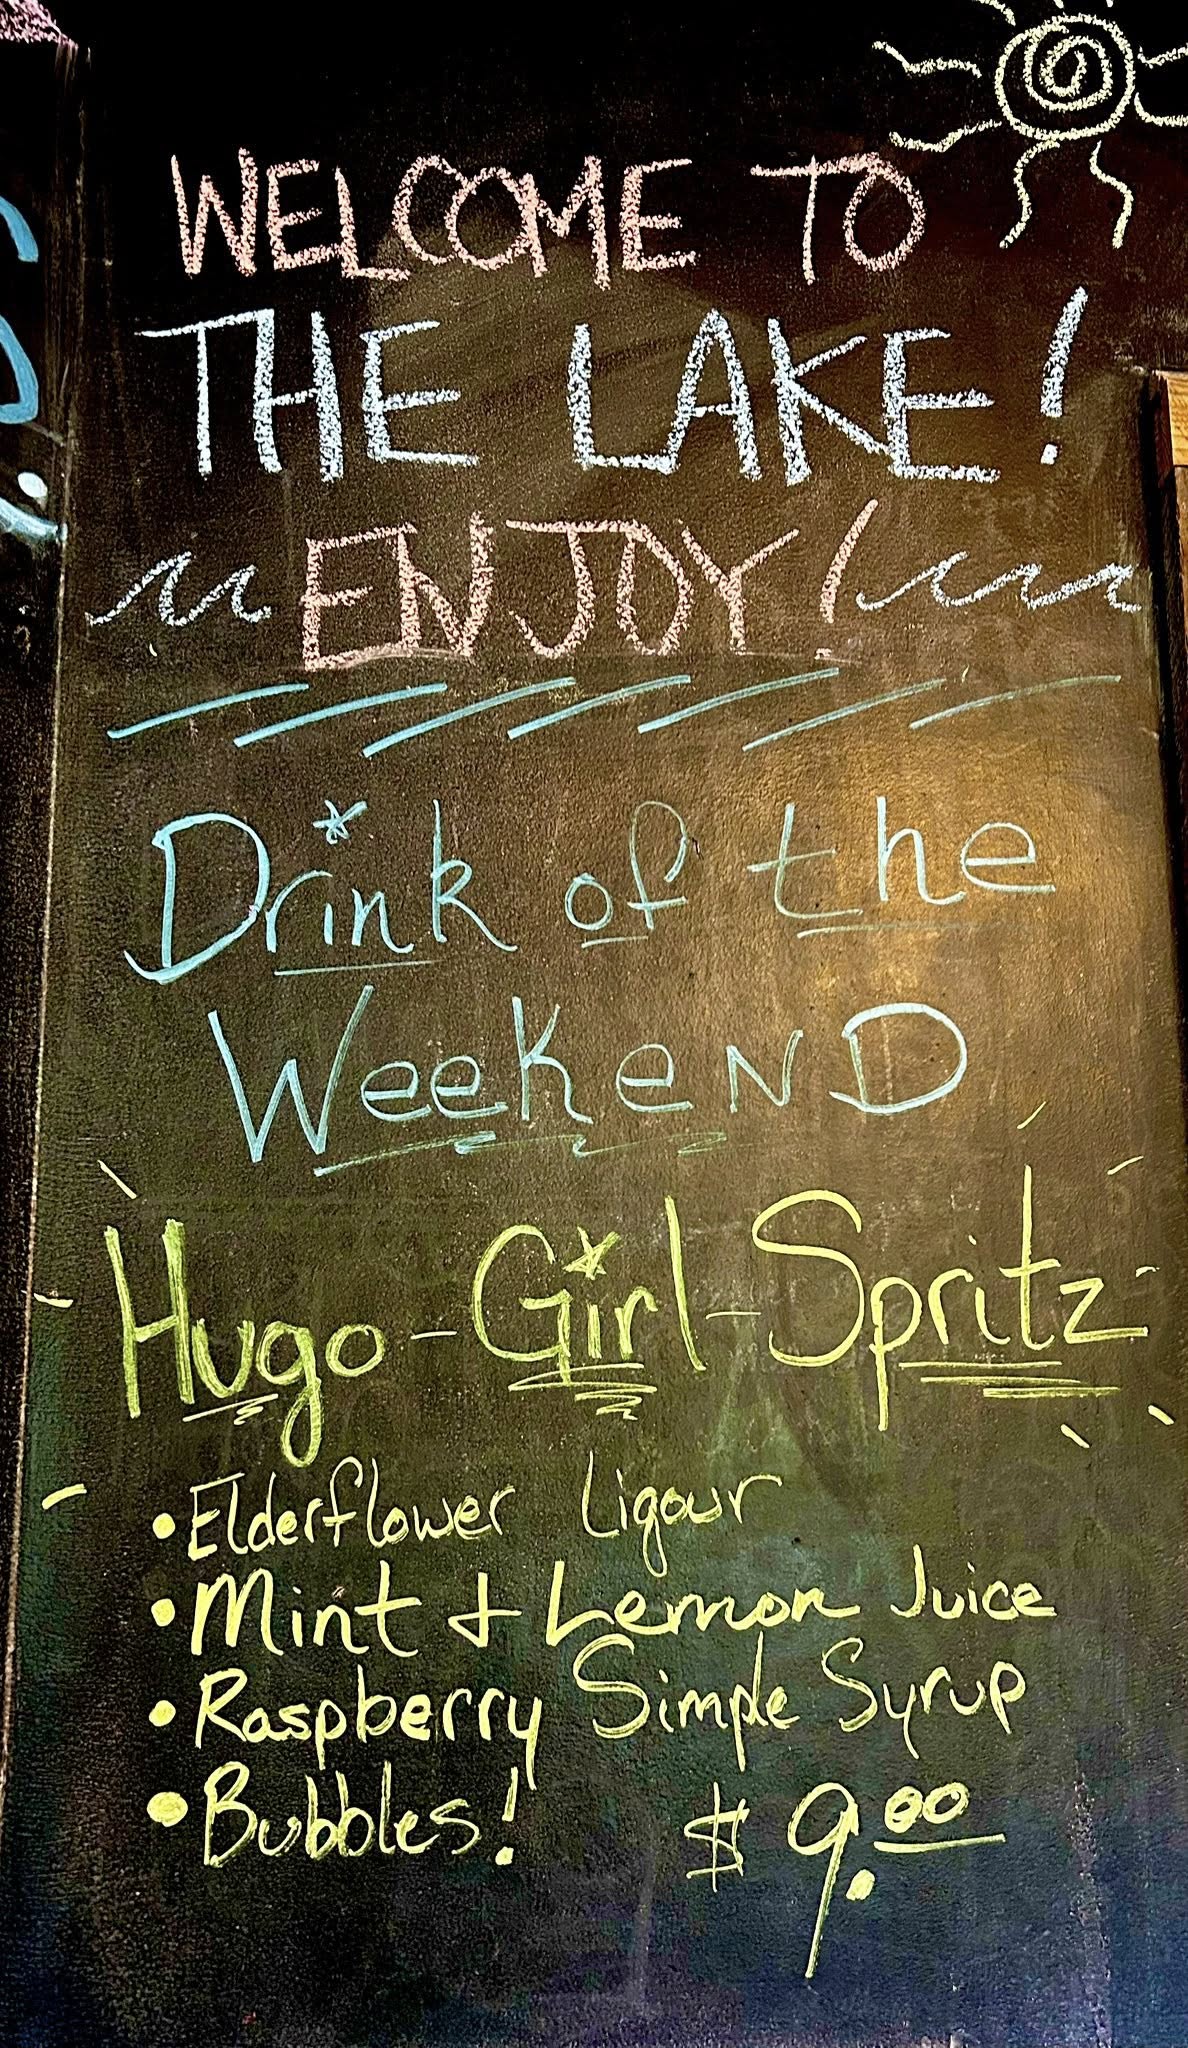 WELCOME TO
THE LAKE!
ENJOY!
Drink of the
WeekeND
Hugo-Girl-Spritz
• Elderflower Ligour
• Mint + Lemon Juice
• Raspberry Simple Syrup
• Bubbles! $9.00